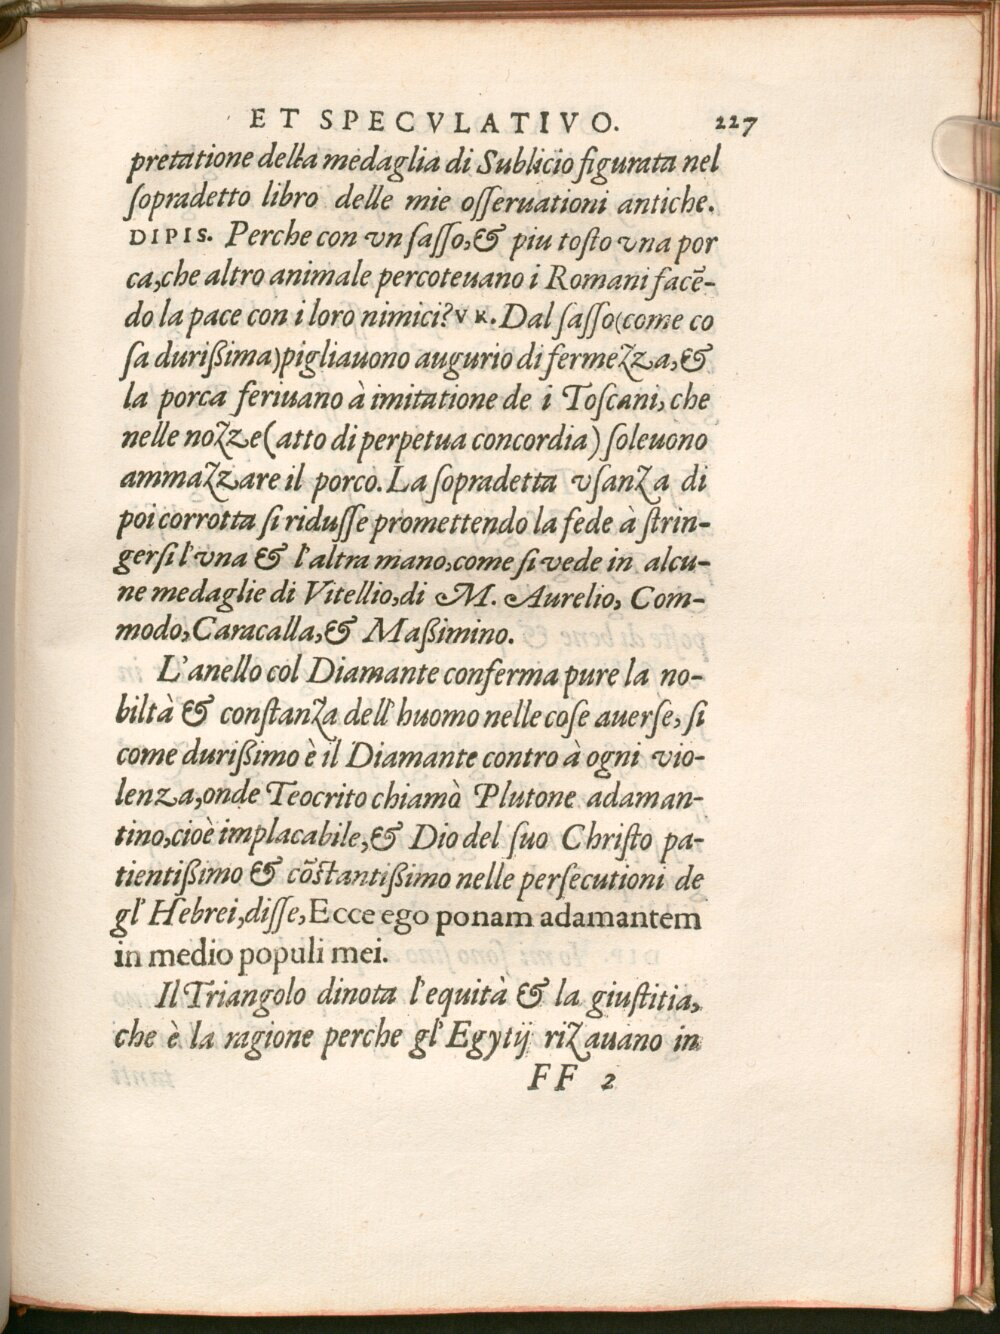 ET SPECVLATIVO. 227
pretatione della medaglia di Sublicio figurata nel
sopradetto libro delle mie osseruationi antiche.
DIPIS. Perche con vn sasso,& piu tosto vna por
ca,che altro animale percoteuano i Romani facē-
do la pace con i loro nimici? VR. Dal sasso(come co
sa durißima)pigliauono augurio di fermezza,&
la porca feriuano à imitatione de i Toscani, che
nelle nozze(atto di perpetua concordia) soleuono
ammazzare il porco. La sopradetta vsanza di
poi corrotta si ridusse promettendo la fede à strin-
gersi l'vna & l'altra mano,come si vede in alcu-
ne medaglie di Vitellio,di M. Aurelio, Com-
modo,Caracalla,& Maßimino.
L'anello col Diamante conferma pure la no-
biltà & constanza dell'huomo nelle cose auerse, si
come durißimo è il Diamante contro à ogni vio-
lenza,onde Teocrito chiamò Plutone adaman-
tino,cioè implacabile,& Dio del suo Christo pa-
tientißimo & cōstantißimo nelle persecutioni de
gl'Hebrei,disse,Ecce ego ponam adamantem
in medio populi mei.
Il Triangolo dinota l'equità & la giustitia,
che è la ragione perche gl'Egytij rizauano in
FF 2